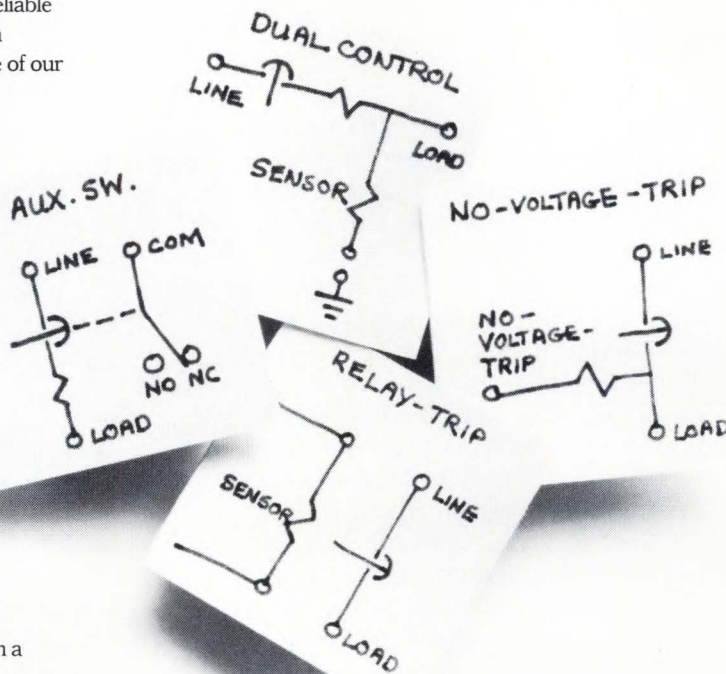 eliable
e of our
DUAL CONTROL
LINE
LOAD
SENSOR
AUX. SW.
LINE
COM
NO NC
LOAD
NO-VOLTAGE-TRIP
LINE
NO-
VOLTAGE-
TRIP
LOAD
RELAY-TRIP
SENSOR
LINE
LOAD
n a